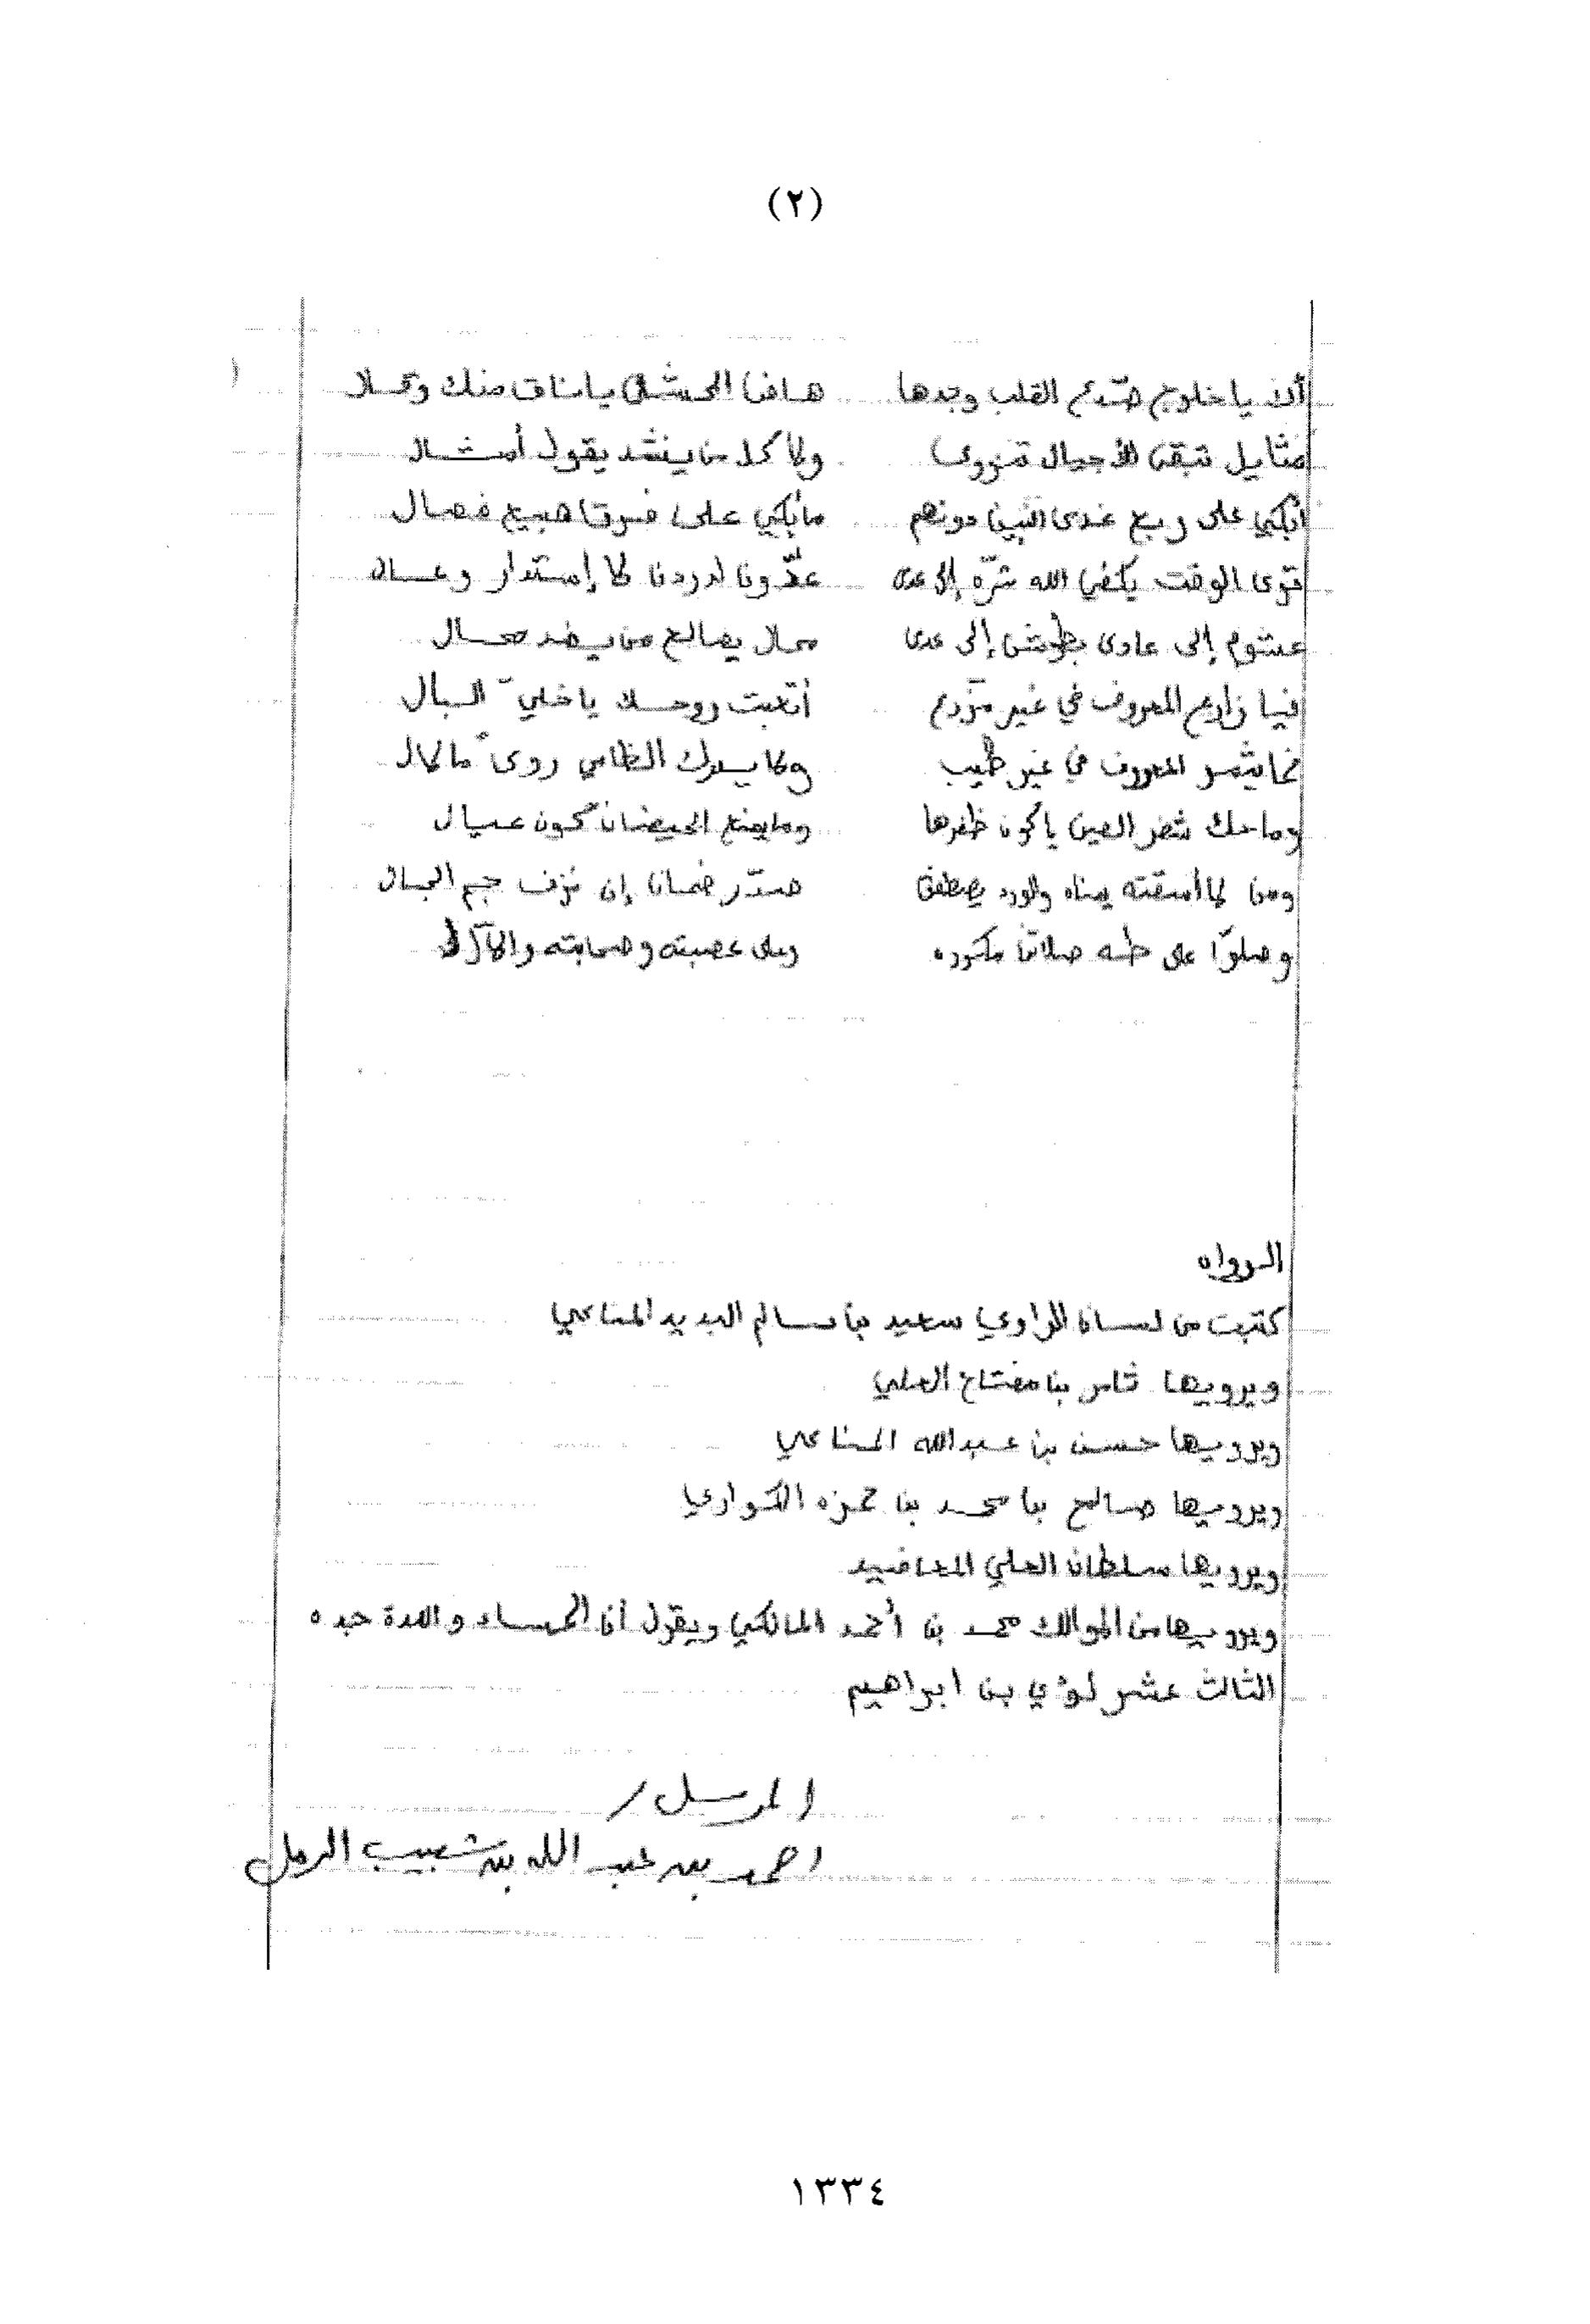 (٢)
ألا يا خلوج صدع القلب وجدها هافى الحشى يا ناق منك وتحلال
مثايل تبقى للأجيال تنروى ولا كل من ينشد يقول أمثال
ابكي على ربع غدى البين دونهم مابكي على فرقا هبيع فصال
قوى الوقت يكفي الله شرّه إلى عدى عدّونا لدردنا لا إستدار وعال
عشوم إلى عادى بطوش إلى عدى محال يصالح من يضد محال
فيا زارع المعروف في غير مزّرع أتعبت روحك يا خليّ البال
فما يثمر المعروف في غير طيب ولا يسرك الظامي روىً مالال
وما حك شفر العين ياكون ظفرها وما يضع الحيضان كون عيال
ومن لا أسقته يمناه والورد يصطفق صدّر ضمان إن نزف جم الجبال
وصلوّا على طه صلاتٍ مكرره وعلى عصبته وصحابته والآل
الرواه
كتبت من لسان الراوي سعيد بن سالم البديد المناعي
ويرويها ثامر بن مفتاح العلي
ويرويها حسن بن عبدالله المناعي
ويرويها صالح بن محمد بن حمزه الكواري
ويرويها سلطان العلي المعاضيد
ويرويها من الموالك محمد بن أحمد المالكي ويقول أن الخمساء والعدة جده
الثالث عشر لؤي بن ابراهيم
المرسل /
احمد بن عبد الله بن شعبيب الرمل
١٣٣٤